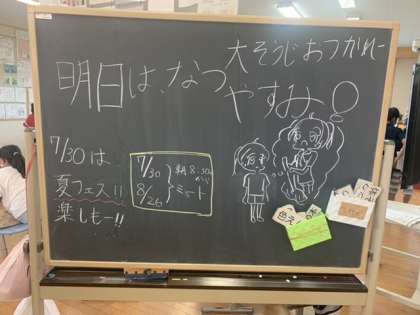 大そうじおつかれー
明日は、なつやすみ
7/30は
夏フェス!!
楽しもー!!
7/30
8/26
朝8:30から
ミート